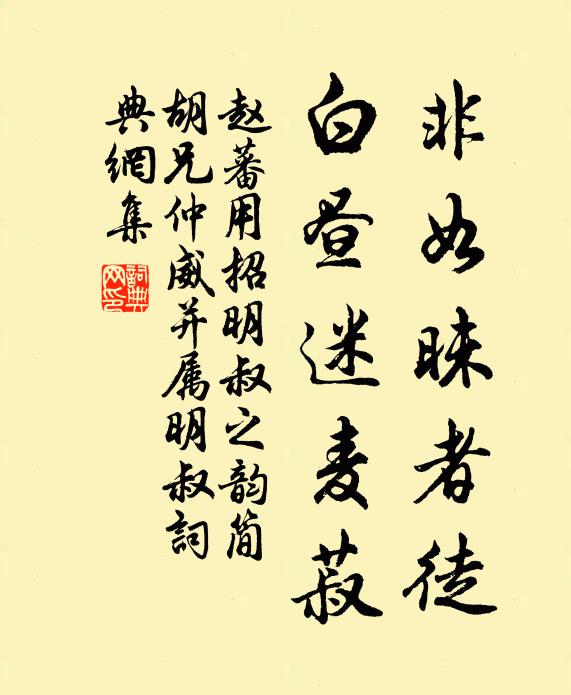 非如昧者徒
白昼迷麦菽
赵蕃用招明叔之韵简
胡兄仲威并属明叔詞
典網集
詞典网印